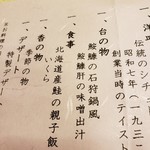 伝統のシチ
昭和七年(一九三二
創業当時のテイスト
一、台の物
鮟鱇の石狩鍋風
鮟鱇肝の味噌出汁
一、食事
北海道産鮭の親子飯
いくら
一、香の物
季節の物
一、デザート
特製デザー